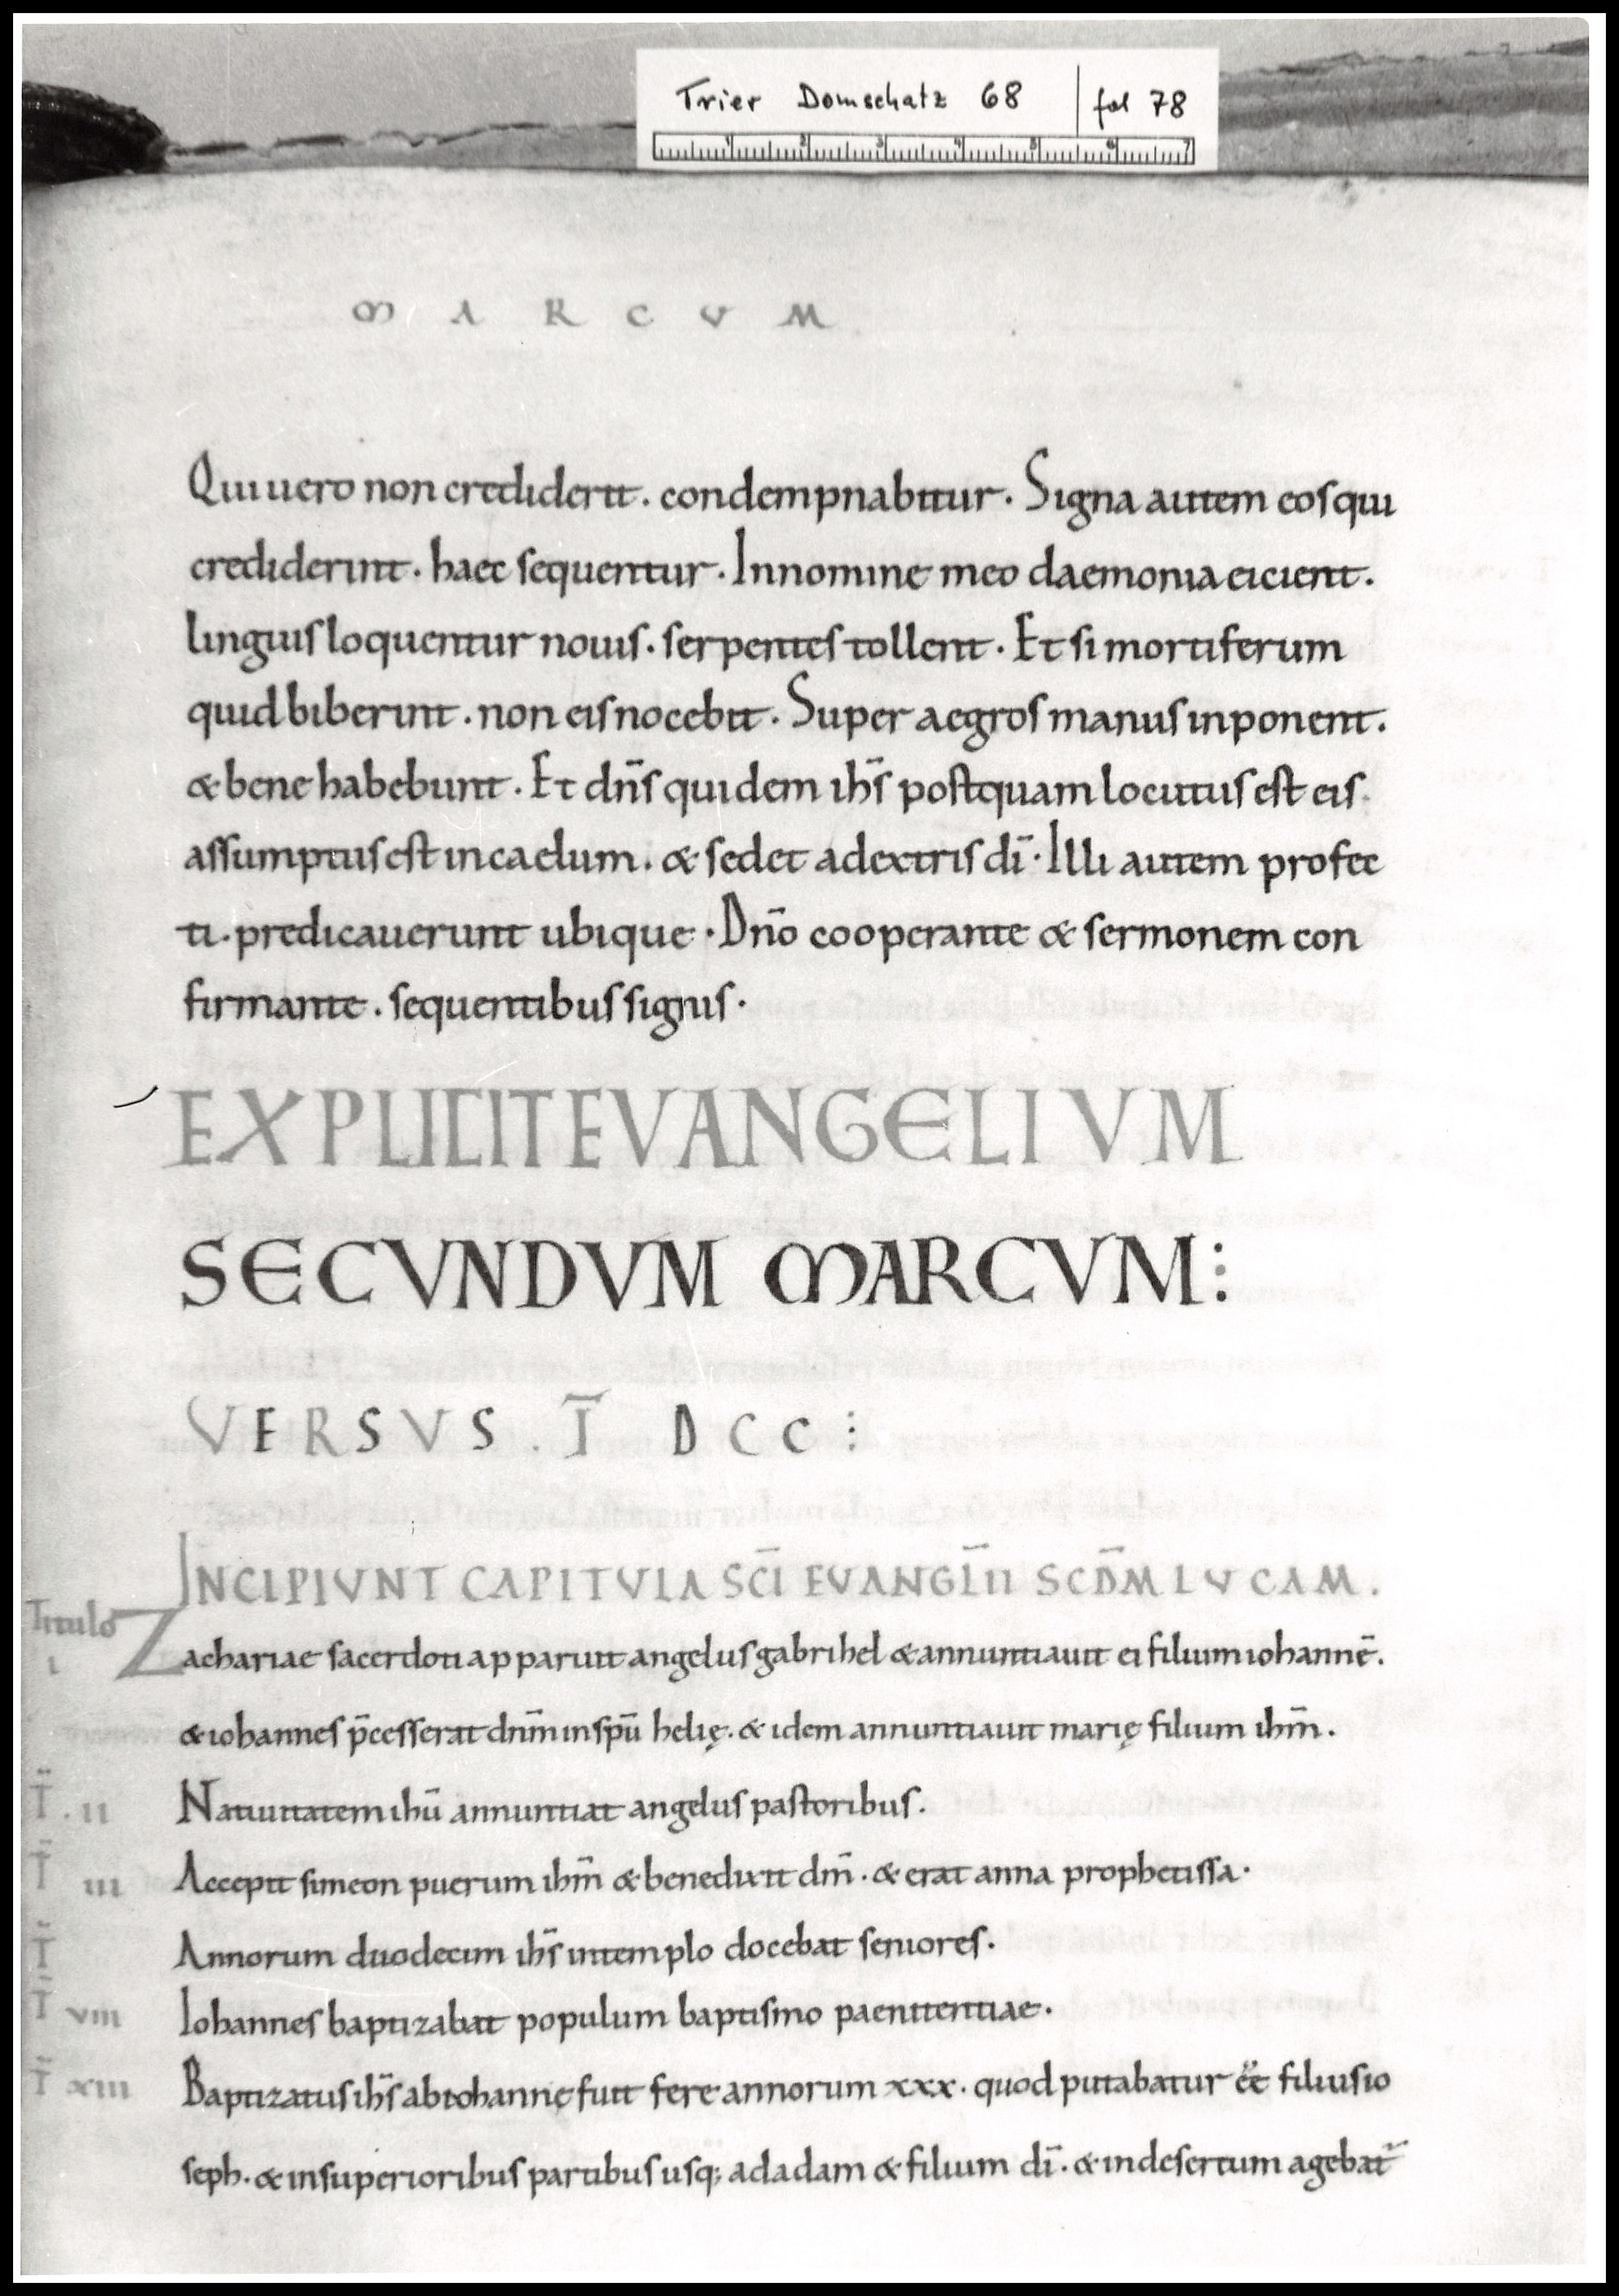 Trier Domschatz 68 | fol 78
1 2 3 4 5 6 7
MARCUM
Qui uero non crediderit. condempnabitur. Signa autem eos qui
crediderint. haec sequentur. In nomine meo daemonia eicient.
linguis loquentur nouis. serpentes tollent. Et si mortiferum
quid biberint. non eis nocebit. Super aegros manus inponent.
& bene habebunt. Et dn̄s quidem ih̄s postquam locutus est eis
assumptus est in caelum. & sedet a dextris dī. Illi autem profec
ti. predicauerunt ubique. Dn̄o cooperante & sermonem con
firmante. sequentibus signis.
EXPLICIT EVANGELIVM
SECVNDVM MARCVM:
VERSVS. Ī DCC:
INCIPIVNT CAPITVLA SC̄I EVANGL̄II SCD̄M LVCAM.
Titulo
i
Zachariae sacerdoti apparuit angelus gabrihel & annuntiauit ei filium iohannē.
& iohannes p̄cesserat dnm̄ in spū helię. & idem annuntiauit marię filium ihm̄.
T̄. ii
Natiuitatem ihū annuntiat angelus pastoribus.
T̄ iii
Accepit simeon puerum ihm̄ & benedixit dm̄. & erat anna prophetissa.
T̄
Annorum duodecim ih̄s in templo docebat seniores.
T̄ viii
Iohannes baptizabat populum baptismo paenitentiae.
T̄ xiii
Baptizatus ih̄s ab iohannę fuit fere annorum xxx. quod putabatur ee̅ filius io
seph. & in superioribus partibus usq; ad adam & filium dī. & in desertum agebat̄